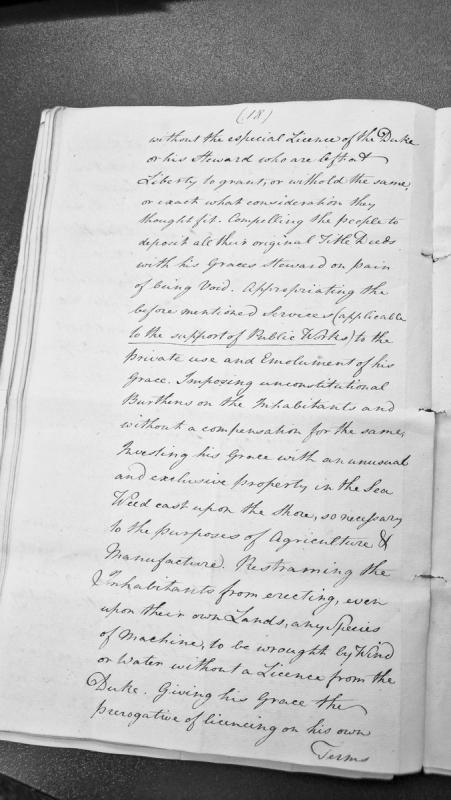 (18)
without the especial Licence of the Duke
or his Steward who are left at
Liberty to grant, or withold the same,
or exact what consideration they
thought fit. Compelling the people to
deposit all their original Title Deeds
with his Graces Steward on pain
of being Void. Appropriating the
before mentioned Services (applicable
to the support of Public Works) to the
private use and Emolument of his
Grace. Imposing unconstitutional
Burthens on the Inhabitants and
without a compensation for the same,
Investing his Grace with an unusual
and exclusive property in the Sea
Weed cast upon the Shore, so necessary
to the purposes of Agriculture &
Manufacture. Restraining the
Inhabitants from erecting, even
upon their own Lands, any Species
of Machine, to be wrought by Wind
or Water without a Licence from the
Duke. Giving his Grace the
prerogative of licencing on his own
Terms